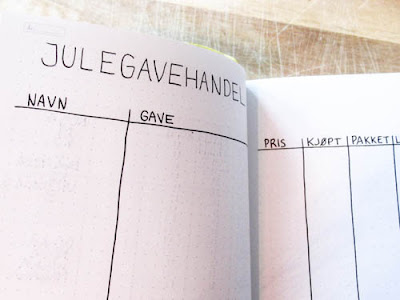 JULEGAVEHANDEL
NAVN GAVE
PRIS KJØPT PAKKET